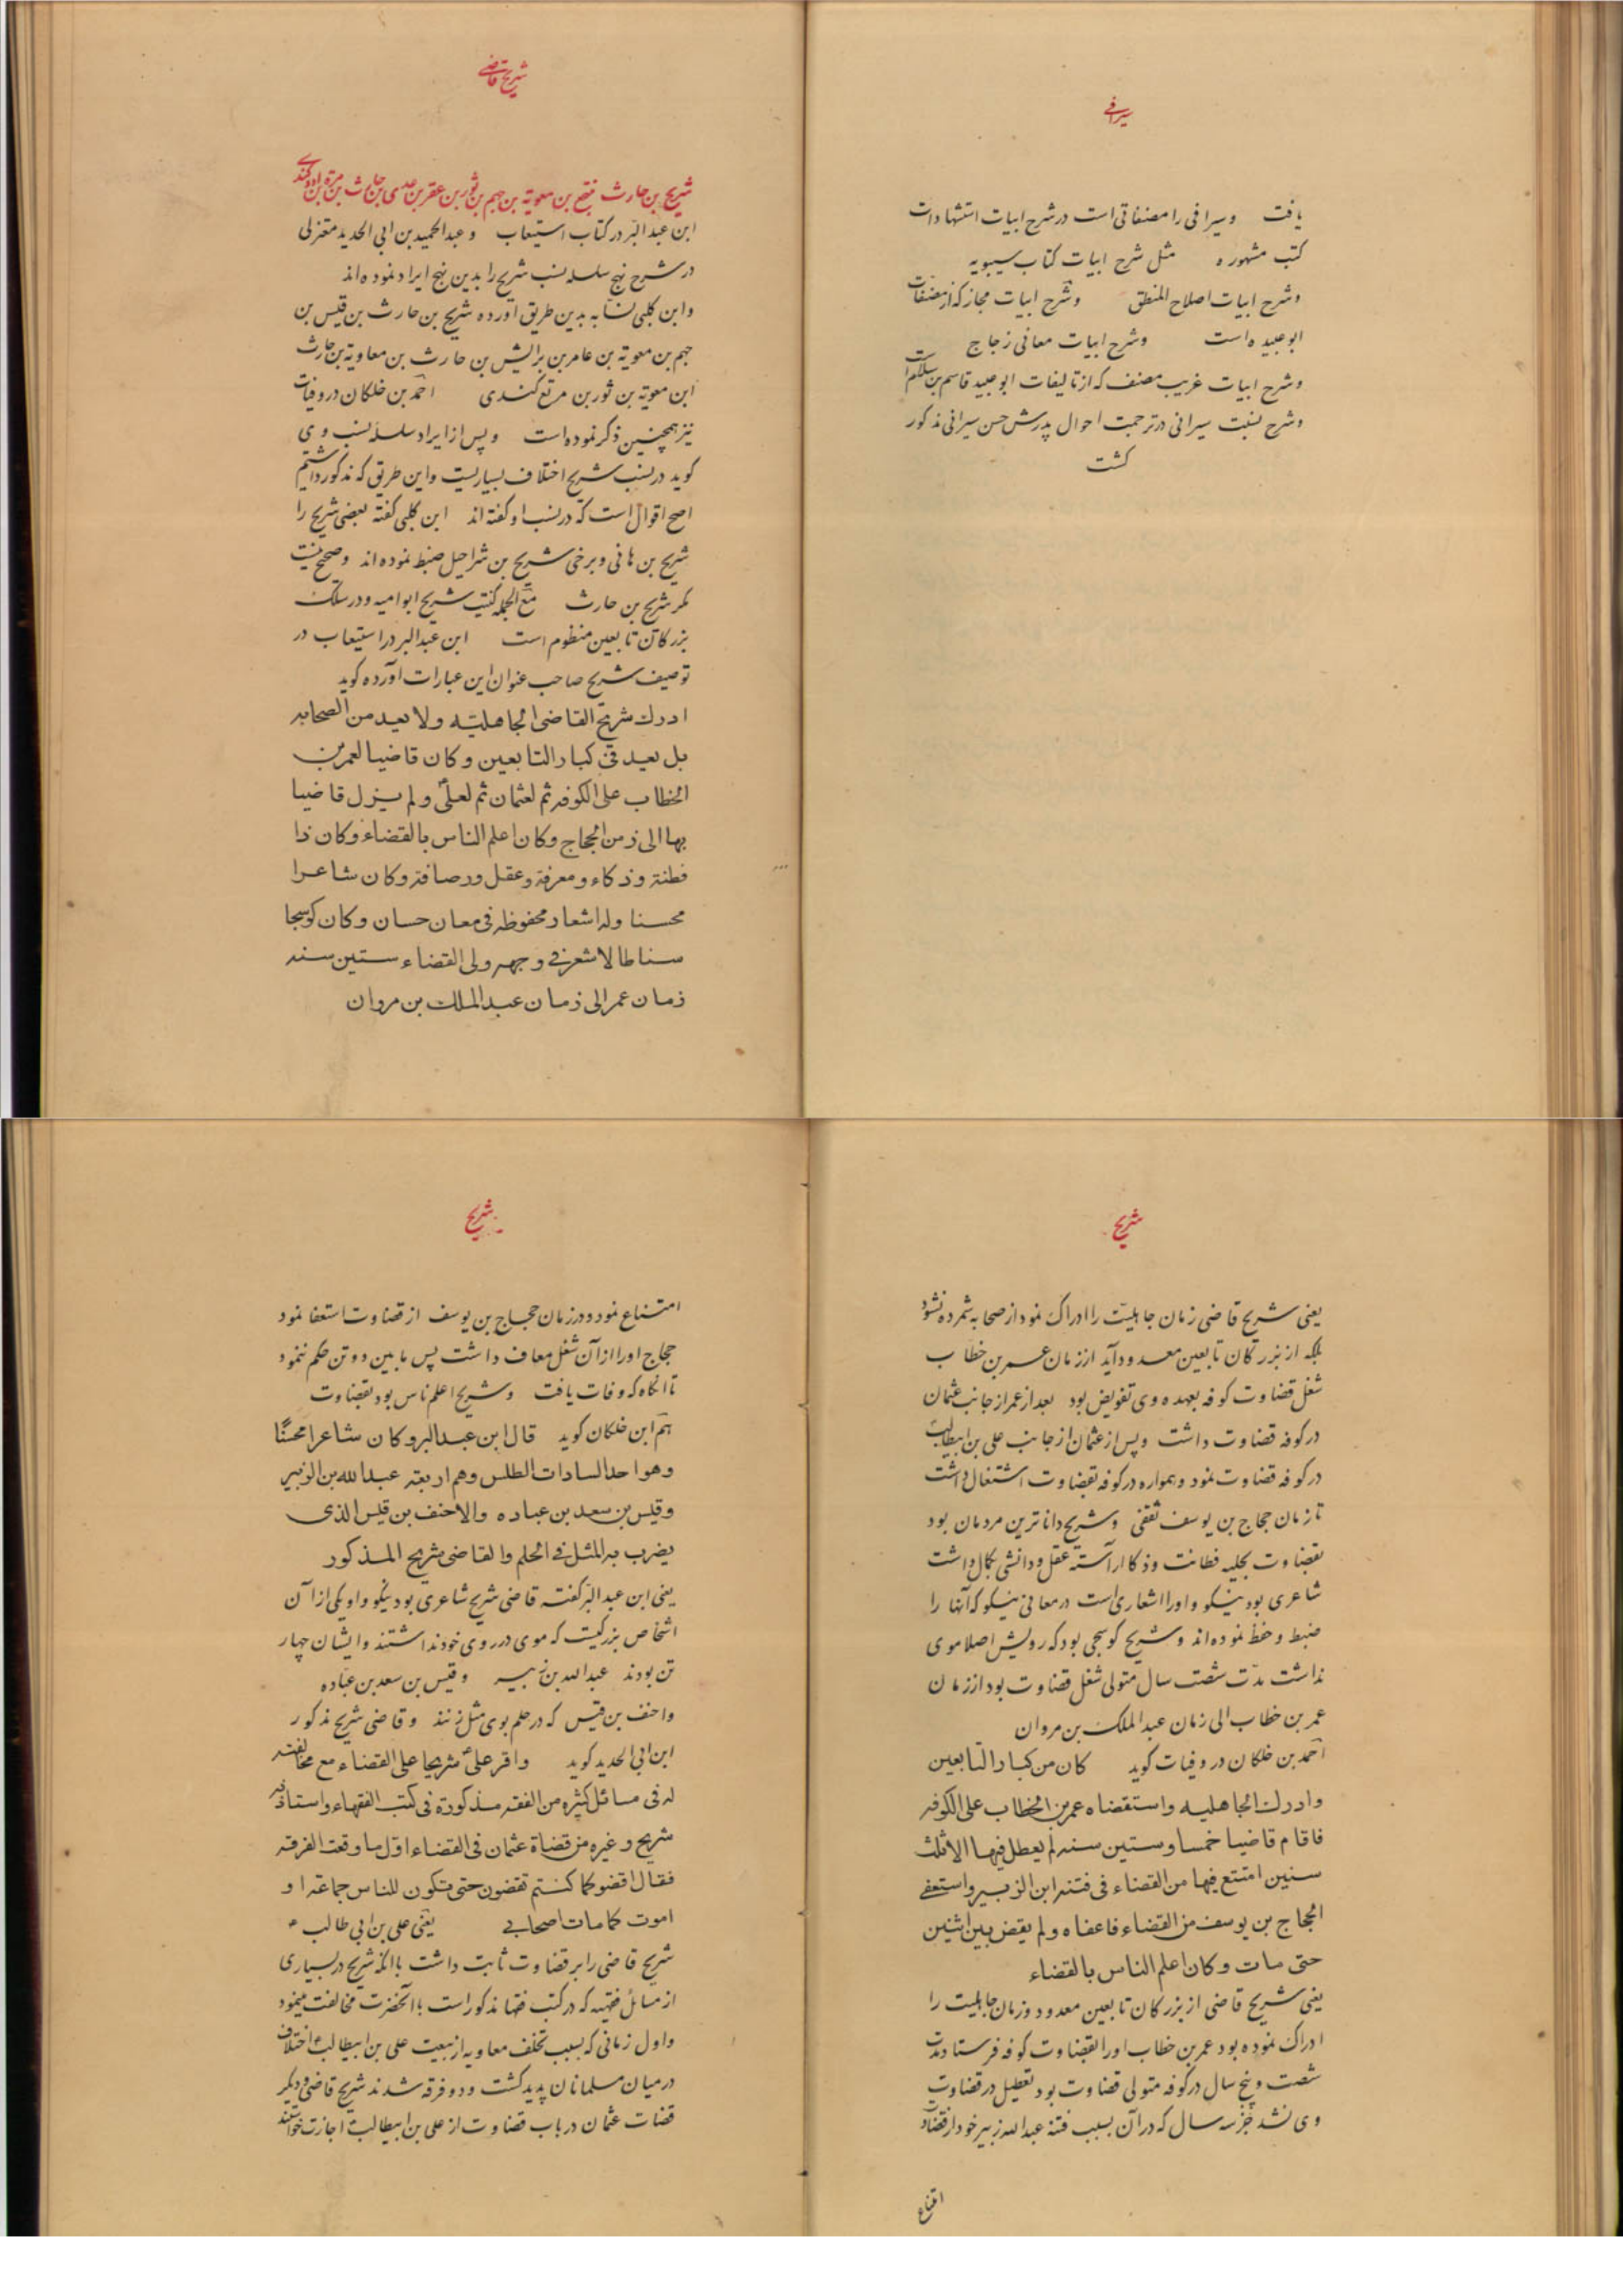 سیرافی
یافت وسیرافی را مصنفاتی است در شرح ابیات استشهادات
کتب مشهوره مثل شرح ابیات کتاب سیبویه
وشرح ابیات اصلاح المنطق وشرح ابیات مجاز که از مصنفات
ابو عبیده است وشرح ابیات معانی زجاج
وشرح ابیات غریب مصنف که از تالیفات ابو عبید قاسم بن سلام است
وشرح نسبت سیرافی در ترجمت احوال پدرش حسن سیرافی مذکور
کشت
شریح قاضی
شریح بن حارث بن معویة بن جهم بن ثور بن عفیر بن عدی بن حارث بن مرة بن ادد کندی
ابن عبد البر در کتاب استیعاب وعبد الحمید بن ابی الحدید معتزلی
در شرح نهج سلسله نسب شریح را بدین نهج ایراد نموده اند
وابن کلبی نسابه بدین طریق آورده شریح بن حارث بن قیس بن
جهم بن معویة بن عامر بن برالیش بن حارث بن معاویة بن حارث
ابن معویة بن ثور بن مرتع کندی احمد بن خلکان در وفیات
نیز همچنین ذکر نموده است وپس از ایراد سلسله نسب وی
کوید در نسب شریح اختلاف بسیاریست واین طریق که مذکور داشتیم
اصح اقوال است که در نسب او کفته اند ابن کلبی کفته بعضی شریح را
شریح بن هانی وبرخی شریح بن شراحیل ضبط نموده اند وصحیح نیست
مکر شریح بن حارث مع الجمله کنیت شریح ابو امیه ودر سلک
بزرکان تابعین منظوم است ابن عبد البر در استیعاب در
توصیف شریح صاحب عنوان این عبارات آورده کوید
ادرك شریح القاضی الجاهلیه ولا یعد من الصحابه
بل یعد فی کبار التابعین وکان قاضیا لعمر بن
الخطاب علی الکوفه ثم لعثمان ثم لعلی ولم یزل قاضیا
بها الی زمن الحجاج وکان اعلم الناس بالقضاء وکان ذا
فطنة وذکاء ومعرفة وعقل ورصافة وکان شاعرا
محسنا وله اشعار محفوظه فی معان حسان وکان کوسجا
سناطا لا شعر فی وجهه ولی القضاء ستین سنه
زمان عمر الی زمان عبد الملك بن مروان
شریح
یعنی شریح قاضی زمان جاهلیت را ادراک نمود از صحابه شمرده نشود
بلکه از بزرکان تابعین معدود آید از زمان عمر بن خطاب
شغل قضاوت کوفه بعهده وی تفویض بود بعد از عمر از جانب عثمان
در کوفه قضاوت داشت وپس از عثمان از جانب علی بن ابیطالب
در کوفه قضاوت نمود وهمواره در کوفه بقضاوت اشتغال داشت
تا زمان حجاج بن یوسف ثقفی وشریح داناترین مردمان بود
بقضاوت بحلیه فطانت وذکا آراسته عقل ودانشی بکمال داشت
شاعری بود نیکو واورا اشعاری است در معانی نیکو که آنها را
ضبط وحفظ نموده اند وشریح کوسجی بود که رویش اصلا موی
نداشت مدت شصت سال متولی شغل قضاوت بود از زمان
عمر بن خطاب الی زمان عبد الملک بن مروان
احمد بن خلکان در وفیات کوید کان من کبار التابعین
وادرك الجاهلیه واستقضاه عمر بن الخطاب علی الکوفه
فاقام قاضیا خمسا وستین سنه لم یعطل فیها الا ثلث
سنین امتنع فیها من القضاء فی فتنه ابن الزبیر واستعفی
الحجاج بن یوسف من القضاء فاعفاه ولم یقض بین اثنین
حتی مات وکان اعلم الناس بالقضاء
یعنی شریح قاضی از بزرکان تابعین معدود وزمان جاهلیت را
ادراک نموده بود عمر بن خطاب اورا بقضاوت کوفه فرستاد مدت
شصت وپنج سال در کوفه متولی قضاوت بود تعطیل در قضاوت
وی نشد جز سه سال که در آن بسبب فتنه عبد الله زبیر خود از قضاوت
امتناع
شریح
امتناع نمود ودر زمان حجاج بن یوسف از قضاوت استعفا نمود
حجاج اورا از آن شغل معاف داشت پس مابین دو تن حکم ننمود
تا آنکاه که وفات یافت وشریح اعلم ناس بود بقضاوت
هم ابن خلکان کوید قال ابن عبد البر وکان شاعرا محسنًا
وهو احد السادات الطلس وهم اربعه عبد الله بن الزبیر
وقیس بن سعد بن عباده والاحنف بن قیس الذی
یضرب به المثل فی الحلم والقاضی شریح المذکور
یعنی ابن عبد البر کفته قاضی شریح شاعری بود نیکو واو یکی از آن
اشخاص بزرکیست که موی در روی خود نداشتند وایشان چهار
تن بودند عبد الله بن زبیر وقیس بن سعد بن عباده
واحنف بن قیس که در حلم بوی مثل زنند وقاضی شریح مذکور
ابن ابی الحدید کوید واقر علی شریحا علی القضاء مع مخالفته
له فی مسائل کثیره من الفقه مذکورة فی کتب الفقهاء واستاذنه
شریح وغیره من قضاة عثمان فی القضاء اول ما وقعت الفرقه
فقال اقضوا کما کنتم تقضون حتی تکون للناس جماعه او
اموت کما مات اصحابی یعنی علی بن ابی طالب ع
شریح قاضی را بر قضاوت ثابت داشت با آنکه شریح در بسیاری
از مسائل فقهیه که در کتب فقها مذکور است با آنحضرت مخالفت مینمود
واول زمانی که بسبب تخلف معاویه از بیعت علی بن ابیطالب ع اختلاف
در میان مسلمانان پدید کشت ودو فرقه شدند شریح قاضی ودیکر
قضات عثمان در باب قضاوت از علی بن ابیطالب اجازت خواستند